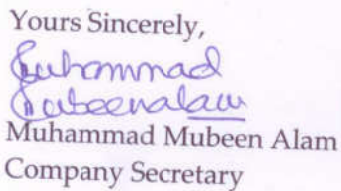 Yours Sincerely,
Muhammad
Mubeenalam
Muhammad Mubeen Alam
Company Secretary